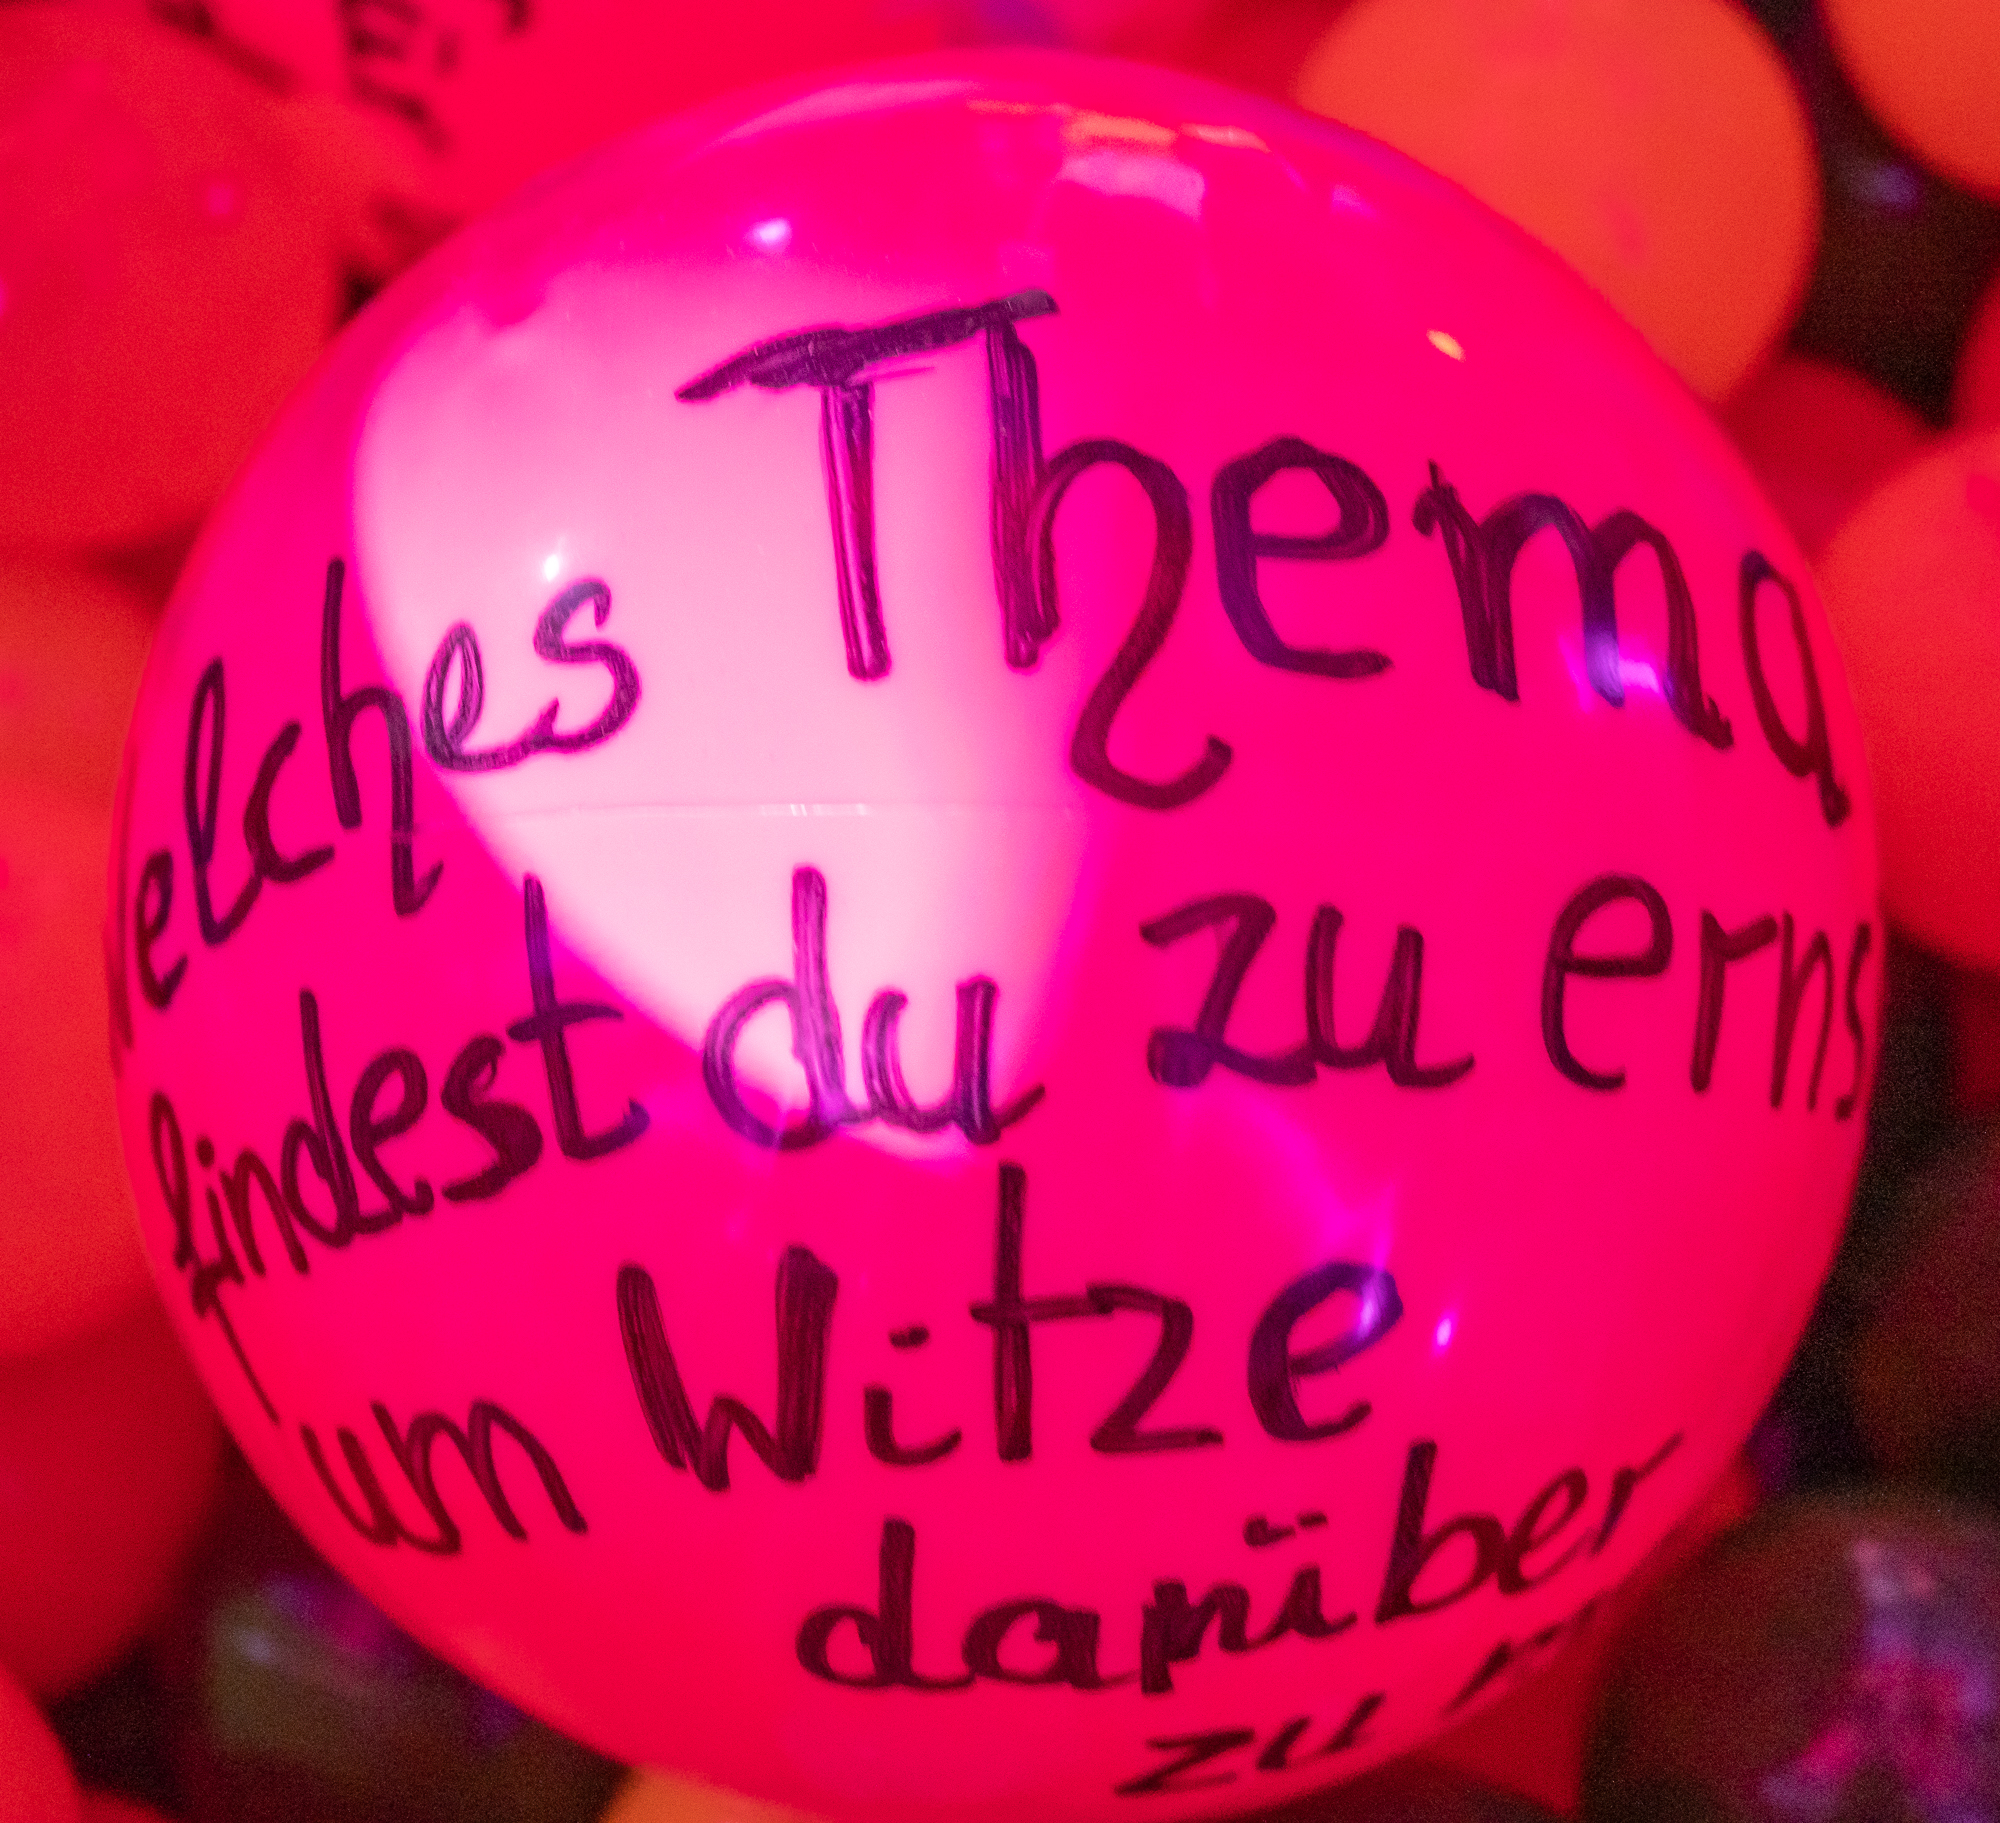 für
elches Thema
findest du zu erns
um Witze
darüber
zu m